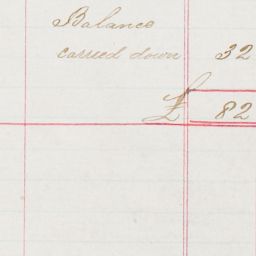 Balance
carried down 32
£ 82